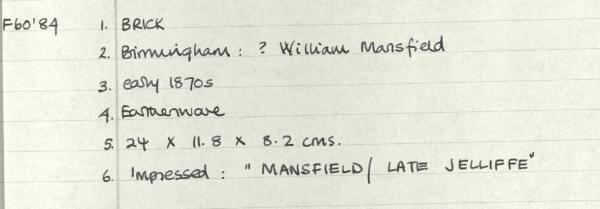 F60'84 1. BRICK
2. Birmingham : ? William Mansfield
3. early 1870s
4. Earthenware
5. 24 X 11.8 X 8.2 cms.
6. Impressed : "MANSFIELD/ LATE JELLIFFE"